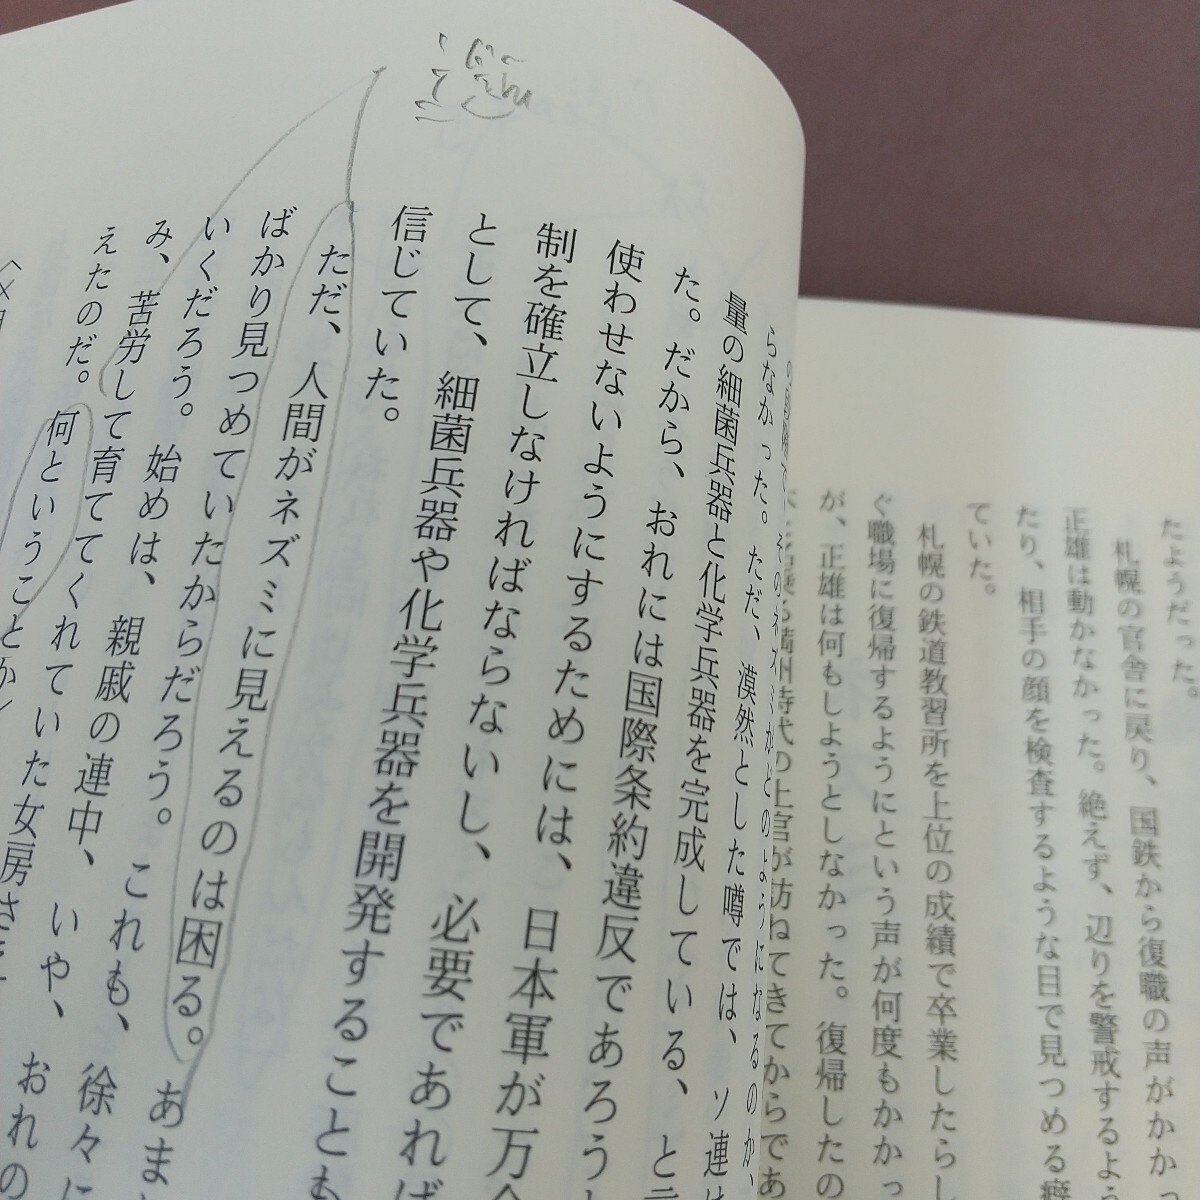 たようだった。
札幌の官舎に戻り、国鉄から復職の声がかかっ
正雄は動かなかった。絶えず、辺りを警戒するよ
たり、相手の顔を検査するような目で見つめる癖
ていた。
札幌の鉄道教習所を上位の成績で卒業したらし
ぐ職場に復帰するようにという声が何度もかかっ
が、正雄は何もしようとしなかった。復帰したの
満州時代の上官が訪ねてきてからであ
そのネズミがどのようになるのか、
らなかった。ただ、漠然とした噂では、ソ連は
量の細菌兵器と化学兵器を完成している、と
た。だから、おれには国際条約違反であろう
使わせないようにするためには、日本軍が万
制を確立しなければならないし、必要であれば
として、細菌兵器や化学兵器を開発することも
信じていた。
ただ、人間がネズミに見えるのは困る。あま
ばかり見つめていたからだろう。これも、徐々に
いくだろう。始めは、親戚の連中、いや、おれの
み、苦労して育ててくれていた女房さ
えたのだ。何ということか